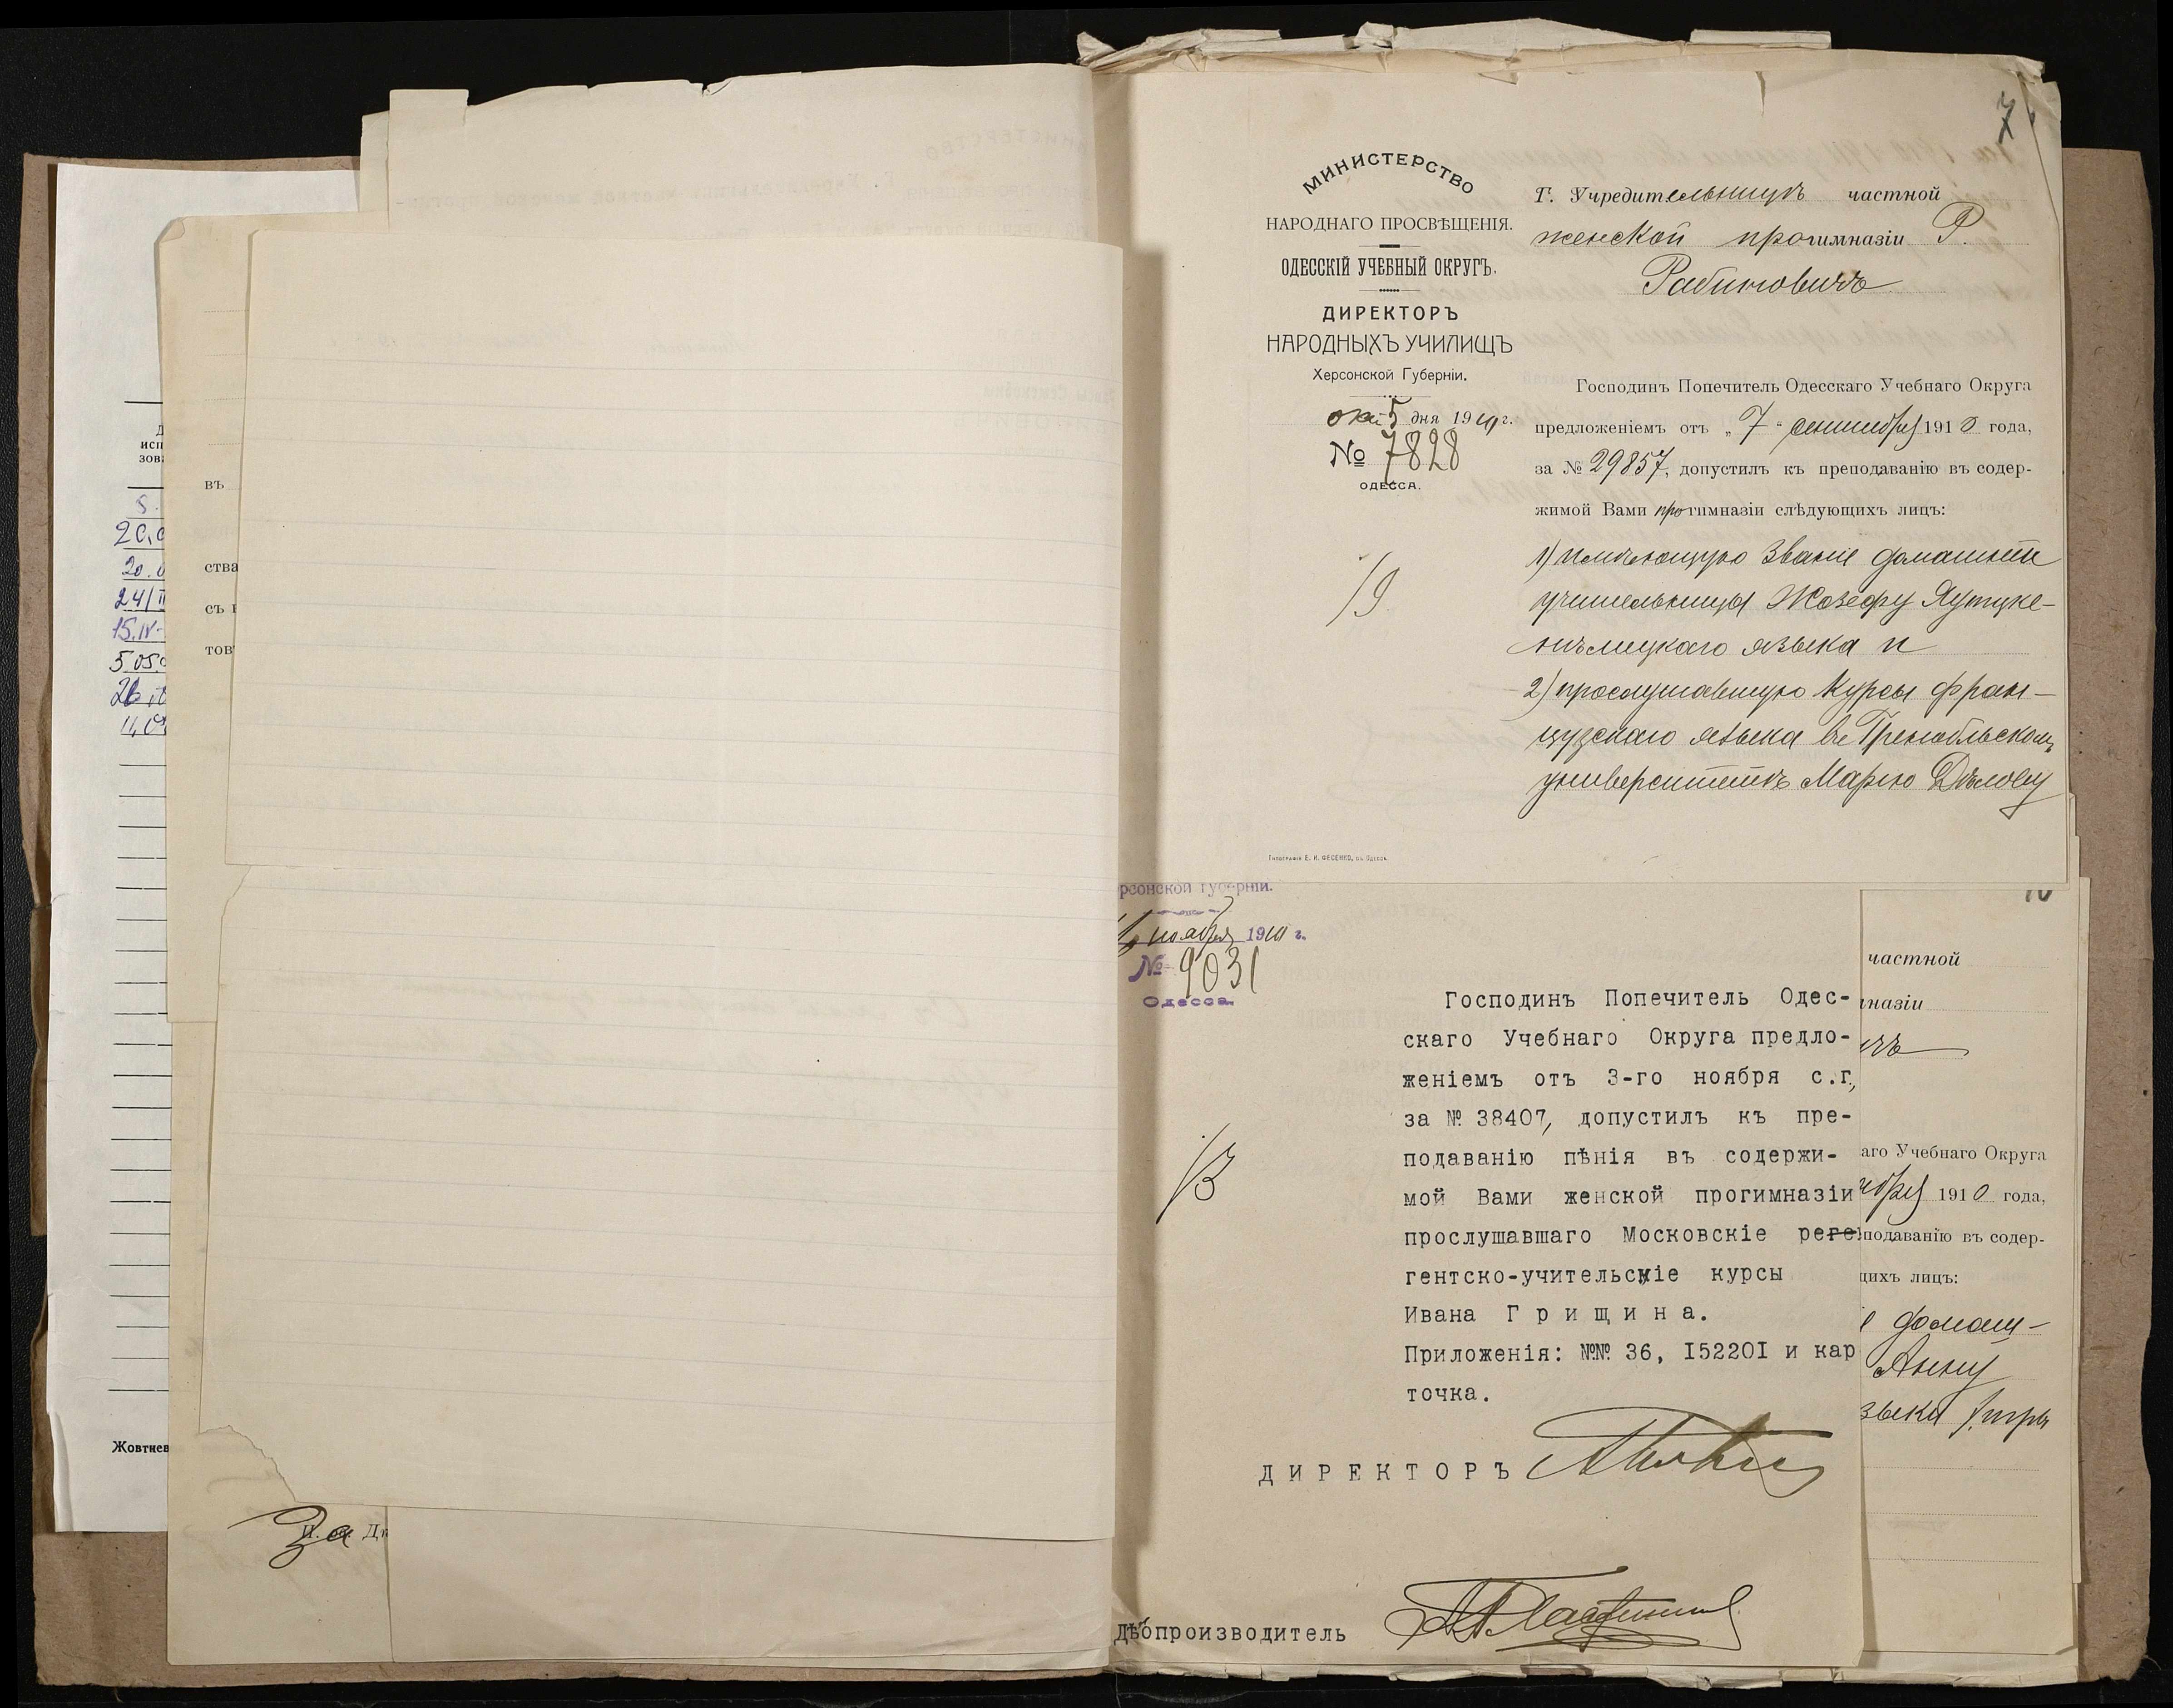 Д
исп
зов
S.
20.0
20.0
24/II
15.IV-
5 050
26
11,0
Жовтнев
въ
ства
съ
тов
За Ди
7
МИНИСТЕРСТВО
НАРОДНАГО ПРОСВѢЩЕНІЯ.
ОДЕССКІЙ УЧЕБНЫЙ ОКРУГЪ.
ДИРЕКТОРЪ
НАРОДНЫХЪ УЧИЛИЩЪ
Херсонской Губерніи.
окт 5 дня 1910 г.
№ 7828
ОДЕССА.
19
Г. Учредительницѣ частной
женской прогимназіи Р.
Рабиновичъ
Господинъ Попечитель Одесскаго Учебнаго Округа
предложеніемъ отъ „7“ сентября 1910 года,
за № 29857, допустилъ къ преподаванію въ содер-
жимой Вами прогимназіи слѣдующихъ лицъ:
1) имѣющую званіе домашней
учительницы Жозефу Яутцке-
нѣмецкаго языка и
2) прослушавшую курсы фран-
цузскаго языка въ Гренобльскомъ
университетѣ Марію Дѣлову
Типографія Е. И. ФЕСЕНКО, въ Одессѣ
рсонской губерніи.
ноября 1910 г.
№ 9031
Одесса.
13
Господинъ Попечитель Одес-
скаго Учебнаго Округа предло-
женіемъ отъ 3-го ноября с.г.,
за № 38407, допустилъ къ пре-
подаванію пѣнія въ содержи-
мой Вами женской прогимназіи
прослушавшаго Московскіе реге
гентско-учительскіе курсы
Ивана Грищина.
Приложенія: №№ 36, I5220I и кар
точка.
ДИРЕКТОРЪ
Дѣлопроизводитель
10
частной
мназіи
ичъ
аго Учебнаго Округа
ября 1910 года,
подаванію въ содер-
щихъ лицъ:
е домаш-
Анну
зыка